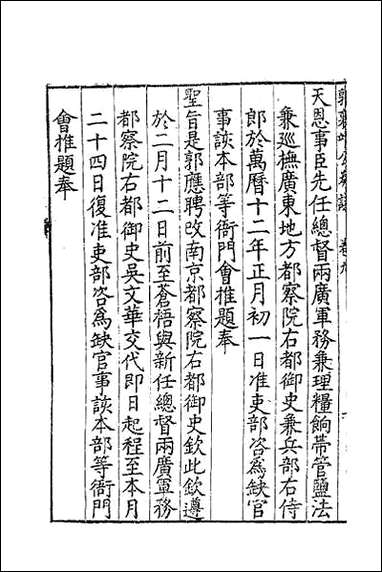 郭襄靖公奏議 卷九
天恩事臣先任總督兩廣軍務兼理糧餉帶管鹽法
兼巡撫廣東地方都察院右都御史兼兵部右侍
郎於萬曆十二年正月初一日准吏部咨爲缺官
事該本部等衙門會推題奉
聖旨是郭應聘改南京都察院右都御史欽此欽遵
於二月十二日前至蒼梧與新任總督兩廣軍務
都察院右都御史吳文華交代即日起程至本月
二十四日復准吏部咨爲缺官事該本部等衙門
會推題奉